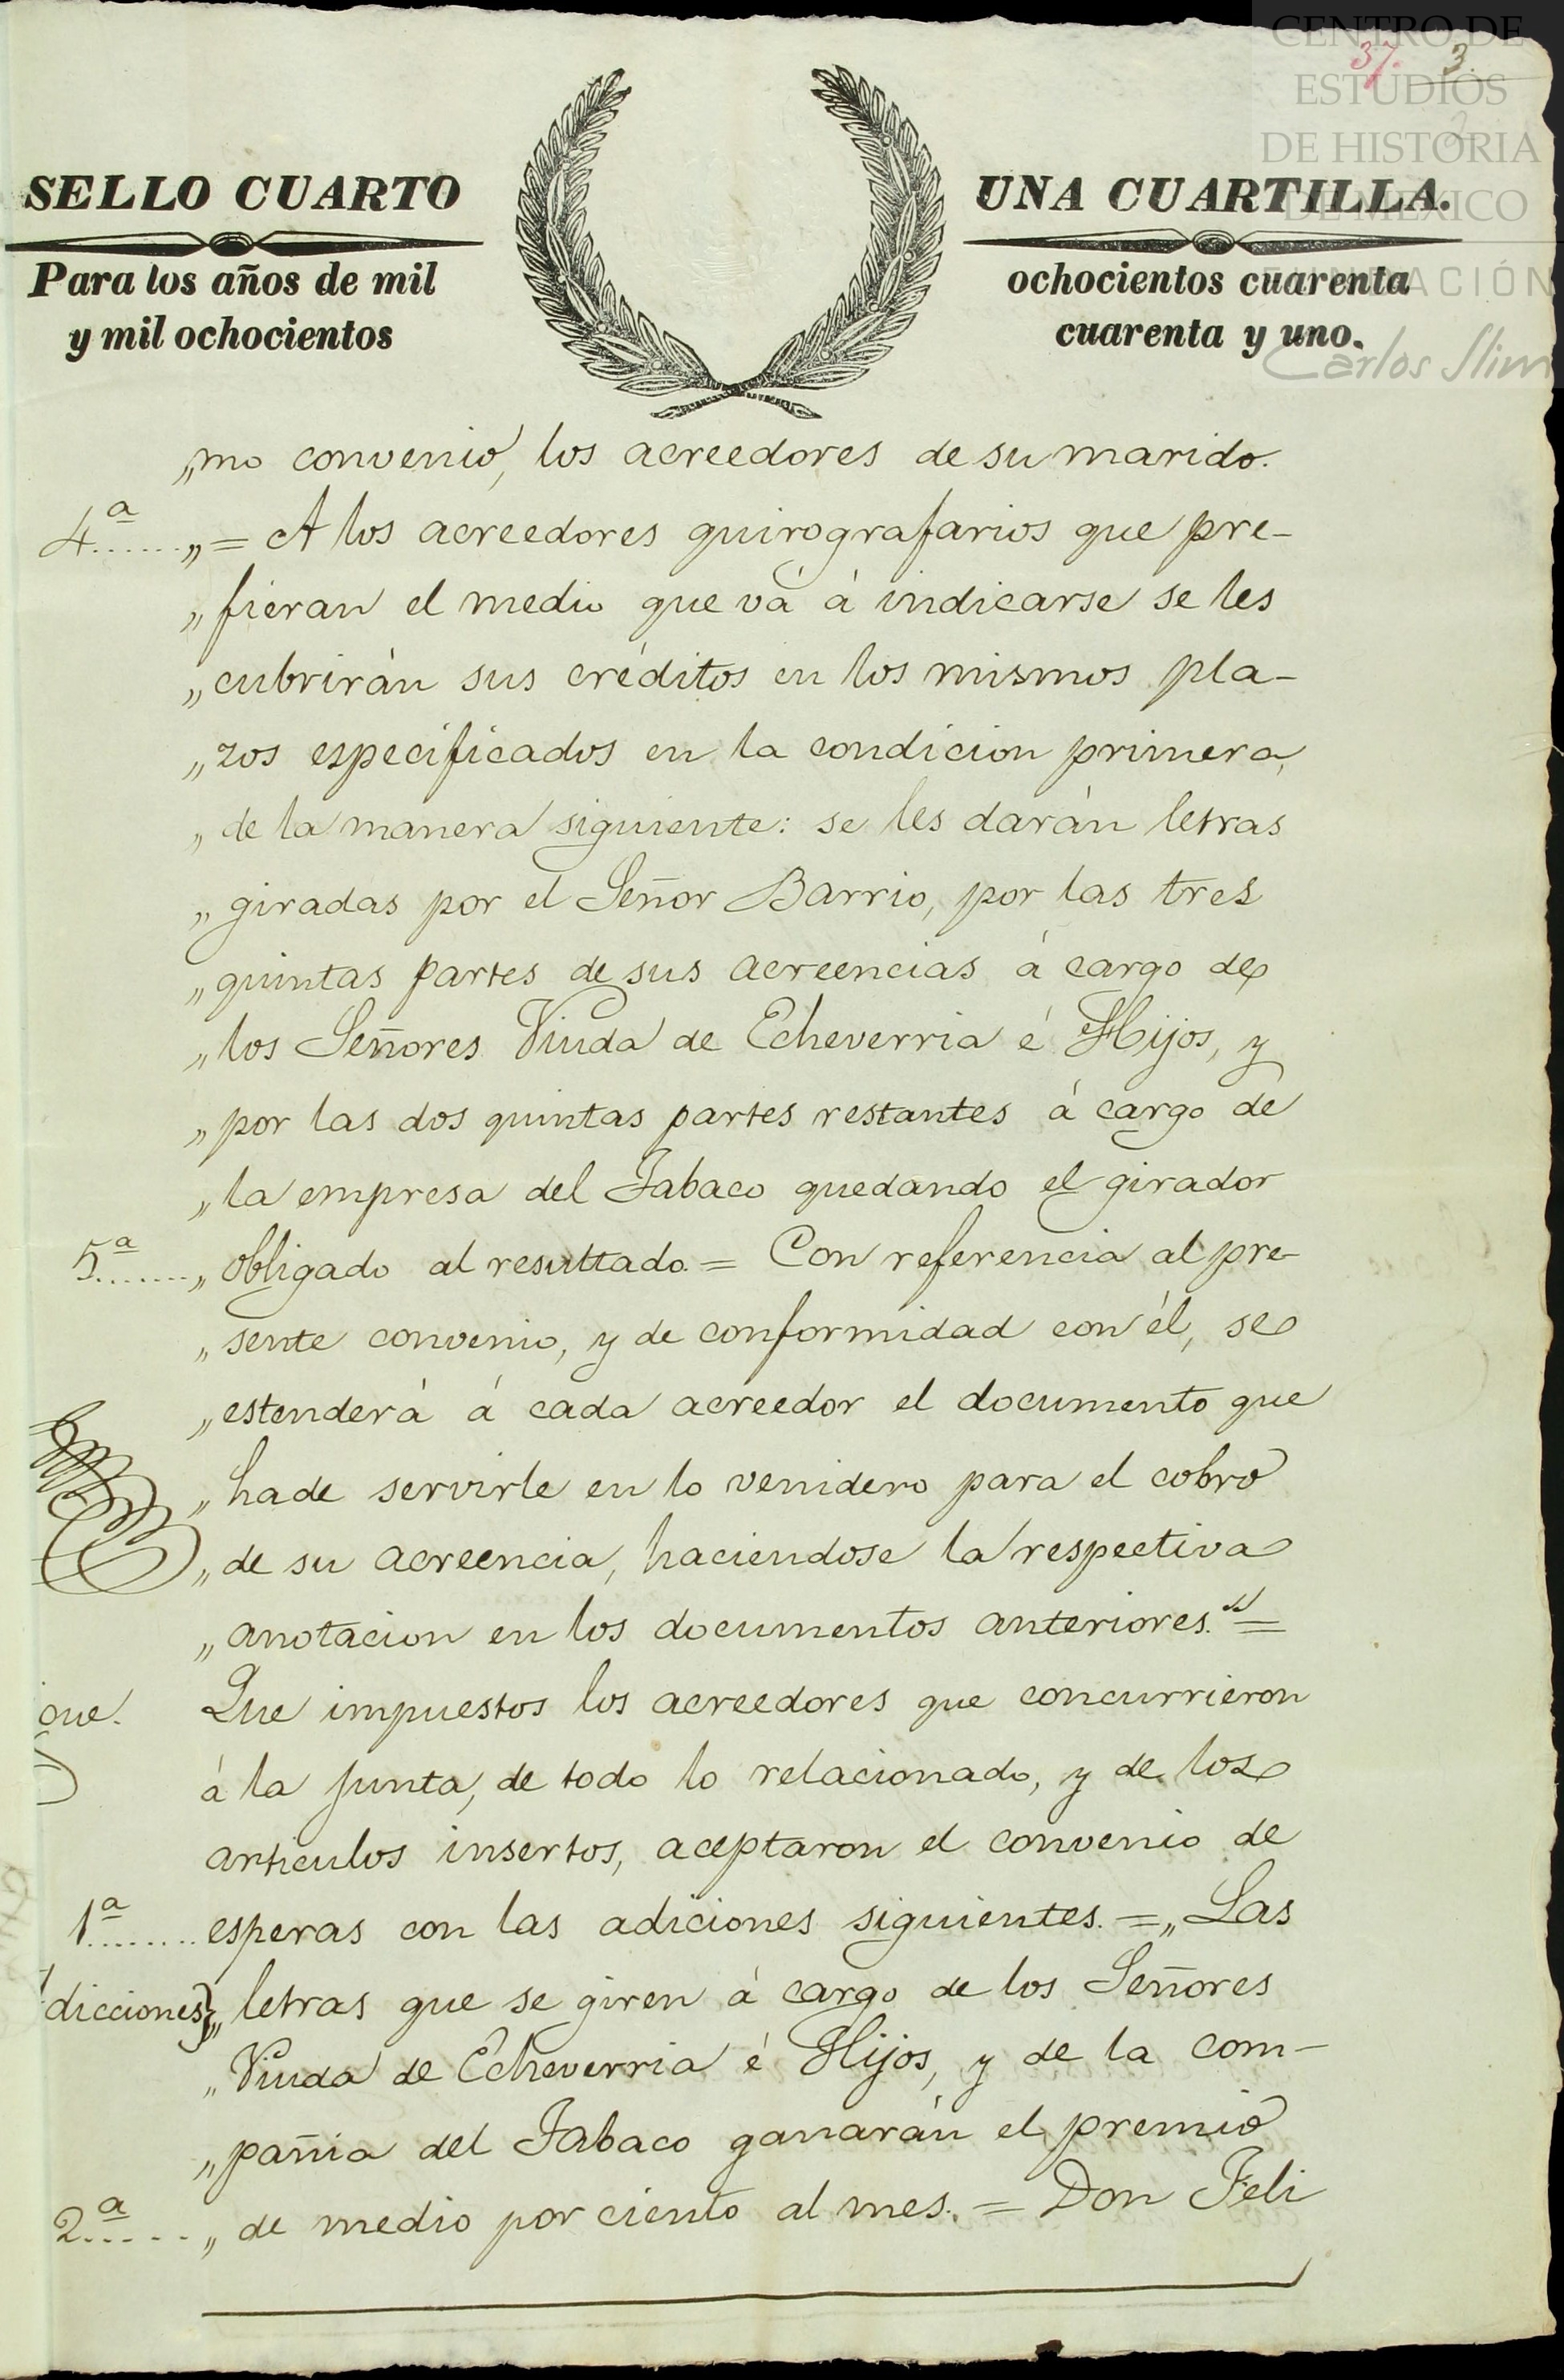 CENTRO DE
ESTUDIOS
DE HISTORIA
DE MÉXICO
FUNDACIÓN
Carlos Slim
37. 3.
SELLO CUARTO
UNA CUARTILLA.
Para los años de mil
ochocientos cuarenta
y mil ochocientos
cuarenta y uno.
„mo convenio, los acreedores de su marido.
4ª...... „= A los acreedores quirografarios que pre-
„fieran el medio que vá á indicarse se les
„cubrirán sus créditos en los mismos pla-
„zos especificados en la condicion primera,
„de la manera siguiente: se les darán letras
„giradas por el Señor Barrio, por las tres
„quintas partes de sus acreencias á cargo de
„los Señores Viuda de Echeverria é Hijos, y
„por las dos quintas partes restantes á cargo de
„la empresa del Tabaco quedando el girador
5ª....... „obligado al resultado.= Con referencia al pre-
„sente convenio, y de conformidad con él, se
„estenderá á cada acreedor el documento que
„hade servirle en lo venidero para el cobro
„de su acreencia, haciendose la respectiva
„anotacion en los documentos anteriores."=
que. Que impuestos los acreedores que concurrieron
á la junta, de todo lo relacionado, y de los
articulos insertos, aceptaron el convenio de
1ª........ esperas con las adiciones siguientes.=„Las
dicciones} „letras que se giren á cargo de los Señores
„Viuda de Echeverria é Hijos, y de la com-
„pañia del Tabaco ganarán el premio
2ª...... „de medio por ciento al mes.= Don Feli